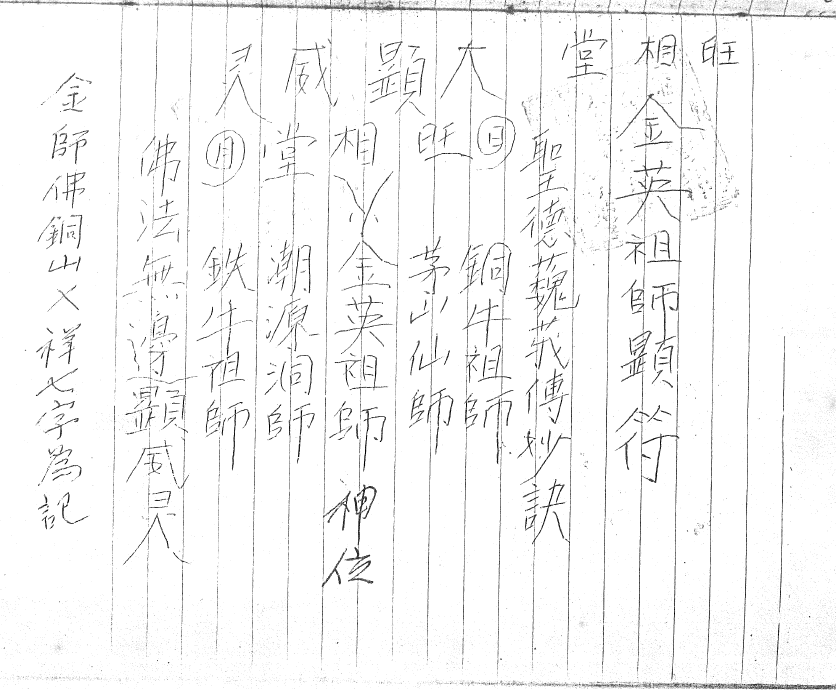 旺相堂
金英祖師顯符
大顯威灵
聖德巍莪傳妙訣
日 旺相堂 月
銅牛祖師
茅山仙師
金英祖師神位
潮源洞師
鉄牛祖師
佛法無邊顯威灵
金師佛銅山乂祥七字為記